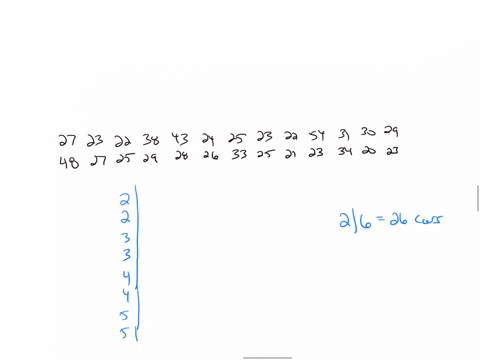 27 23 22 38 43 24 25 23 22 54 31 30 29
48 27 25 29 28 26 33 25 21 23 34 20 23
2|
2|
3|
3|
4|
4|
5|
5|
2|6 = 26 cars